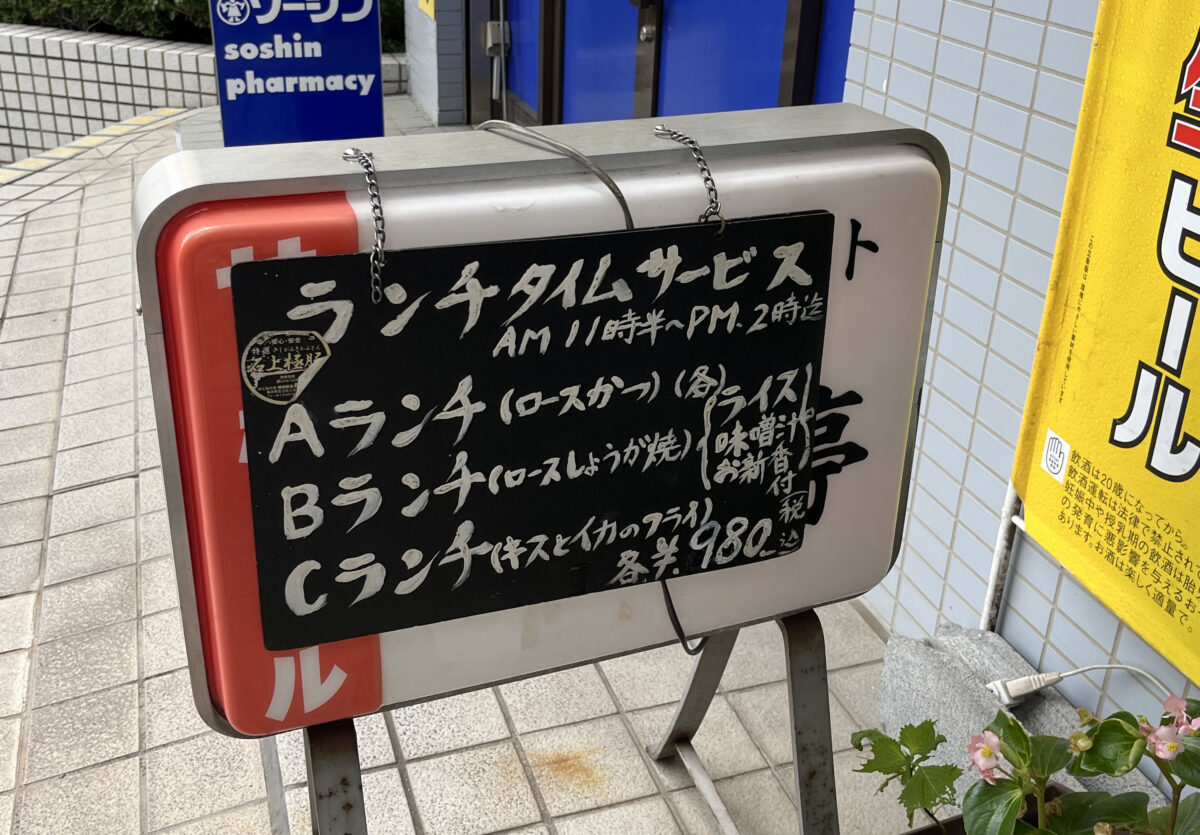 ソーシン
soshin
pharmacy
ランチタイムサービス
AM 11時半~PM.2時迄
Aランチ(ロースかつ)(各)
Bランチ(ロースしょうが焼)
Cランチ(キスとイカのフライ)
ライス
味噌汁
お新香付
(税込)
各¥980.-
安心・安全
特選
名上極豚
サ
ル
ト
亭
生ビール
飲酒は20歳になってから。
飲酒運転は法律で禁止されて
妊娠中や授乳期の飲酒は胎
の発育に悪影響を与えるお
あります。お酒は楽しく適量で。